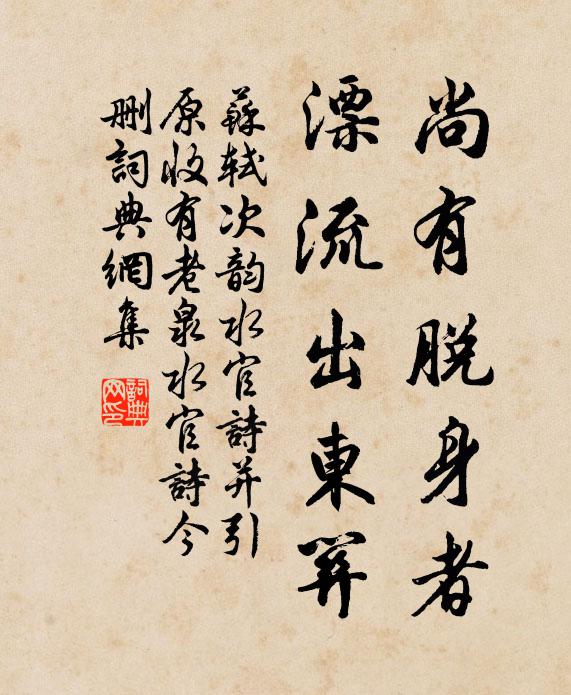 尚有脱身者
漂流出東關
蘇軾次韵水官詩并引
原收有老泉水官詩今
刪詞典網集
詞典网印